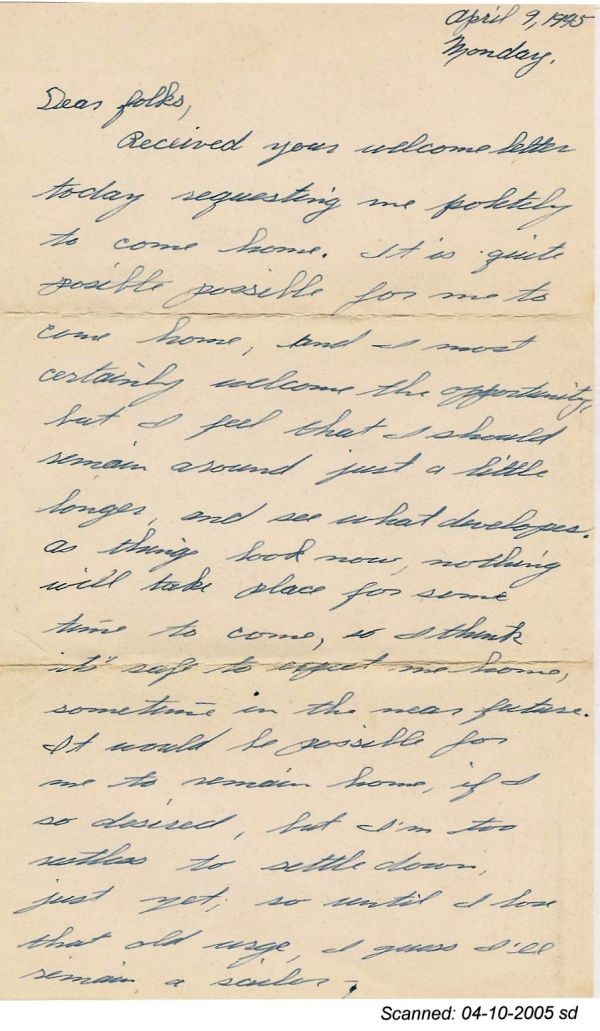 April 9, 1945
Monday.
Dear folks,
Received your welcome letter
today requesting me politily
to come home. It is quite
posible possible for me to
come home, and I most
certainly welcome the opportunity,
but I feel that I should
remain around just a little
longer, and see what developes.
As thing look now, nothing
will take place for some
time to come, so I think
it's safe to expect me home,
sometime in the near future.
It would be possible for
me to remain home, if I
so desired, but I'm too
restless to settle down,
just yet, so until I lose
that old urge, I guess I'll
remain a sailor
Scanned: 04-10-2005 sd